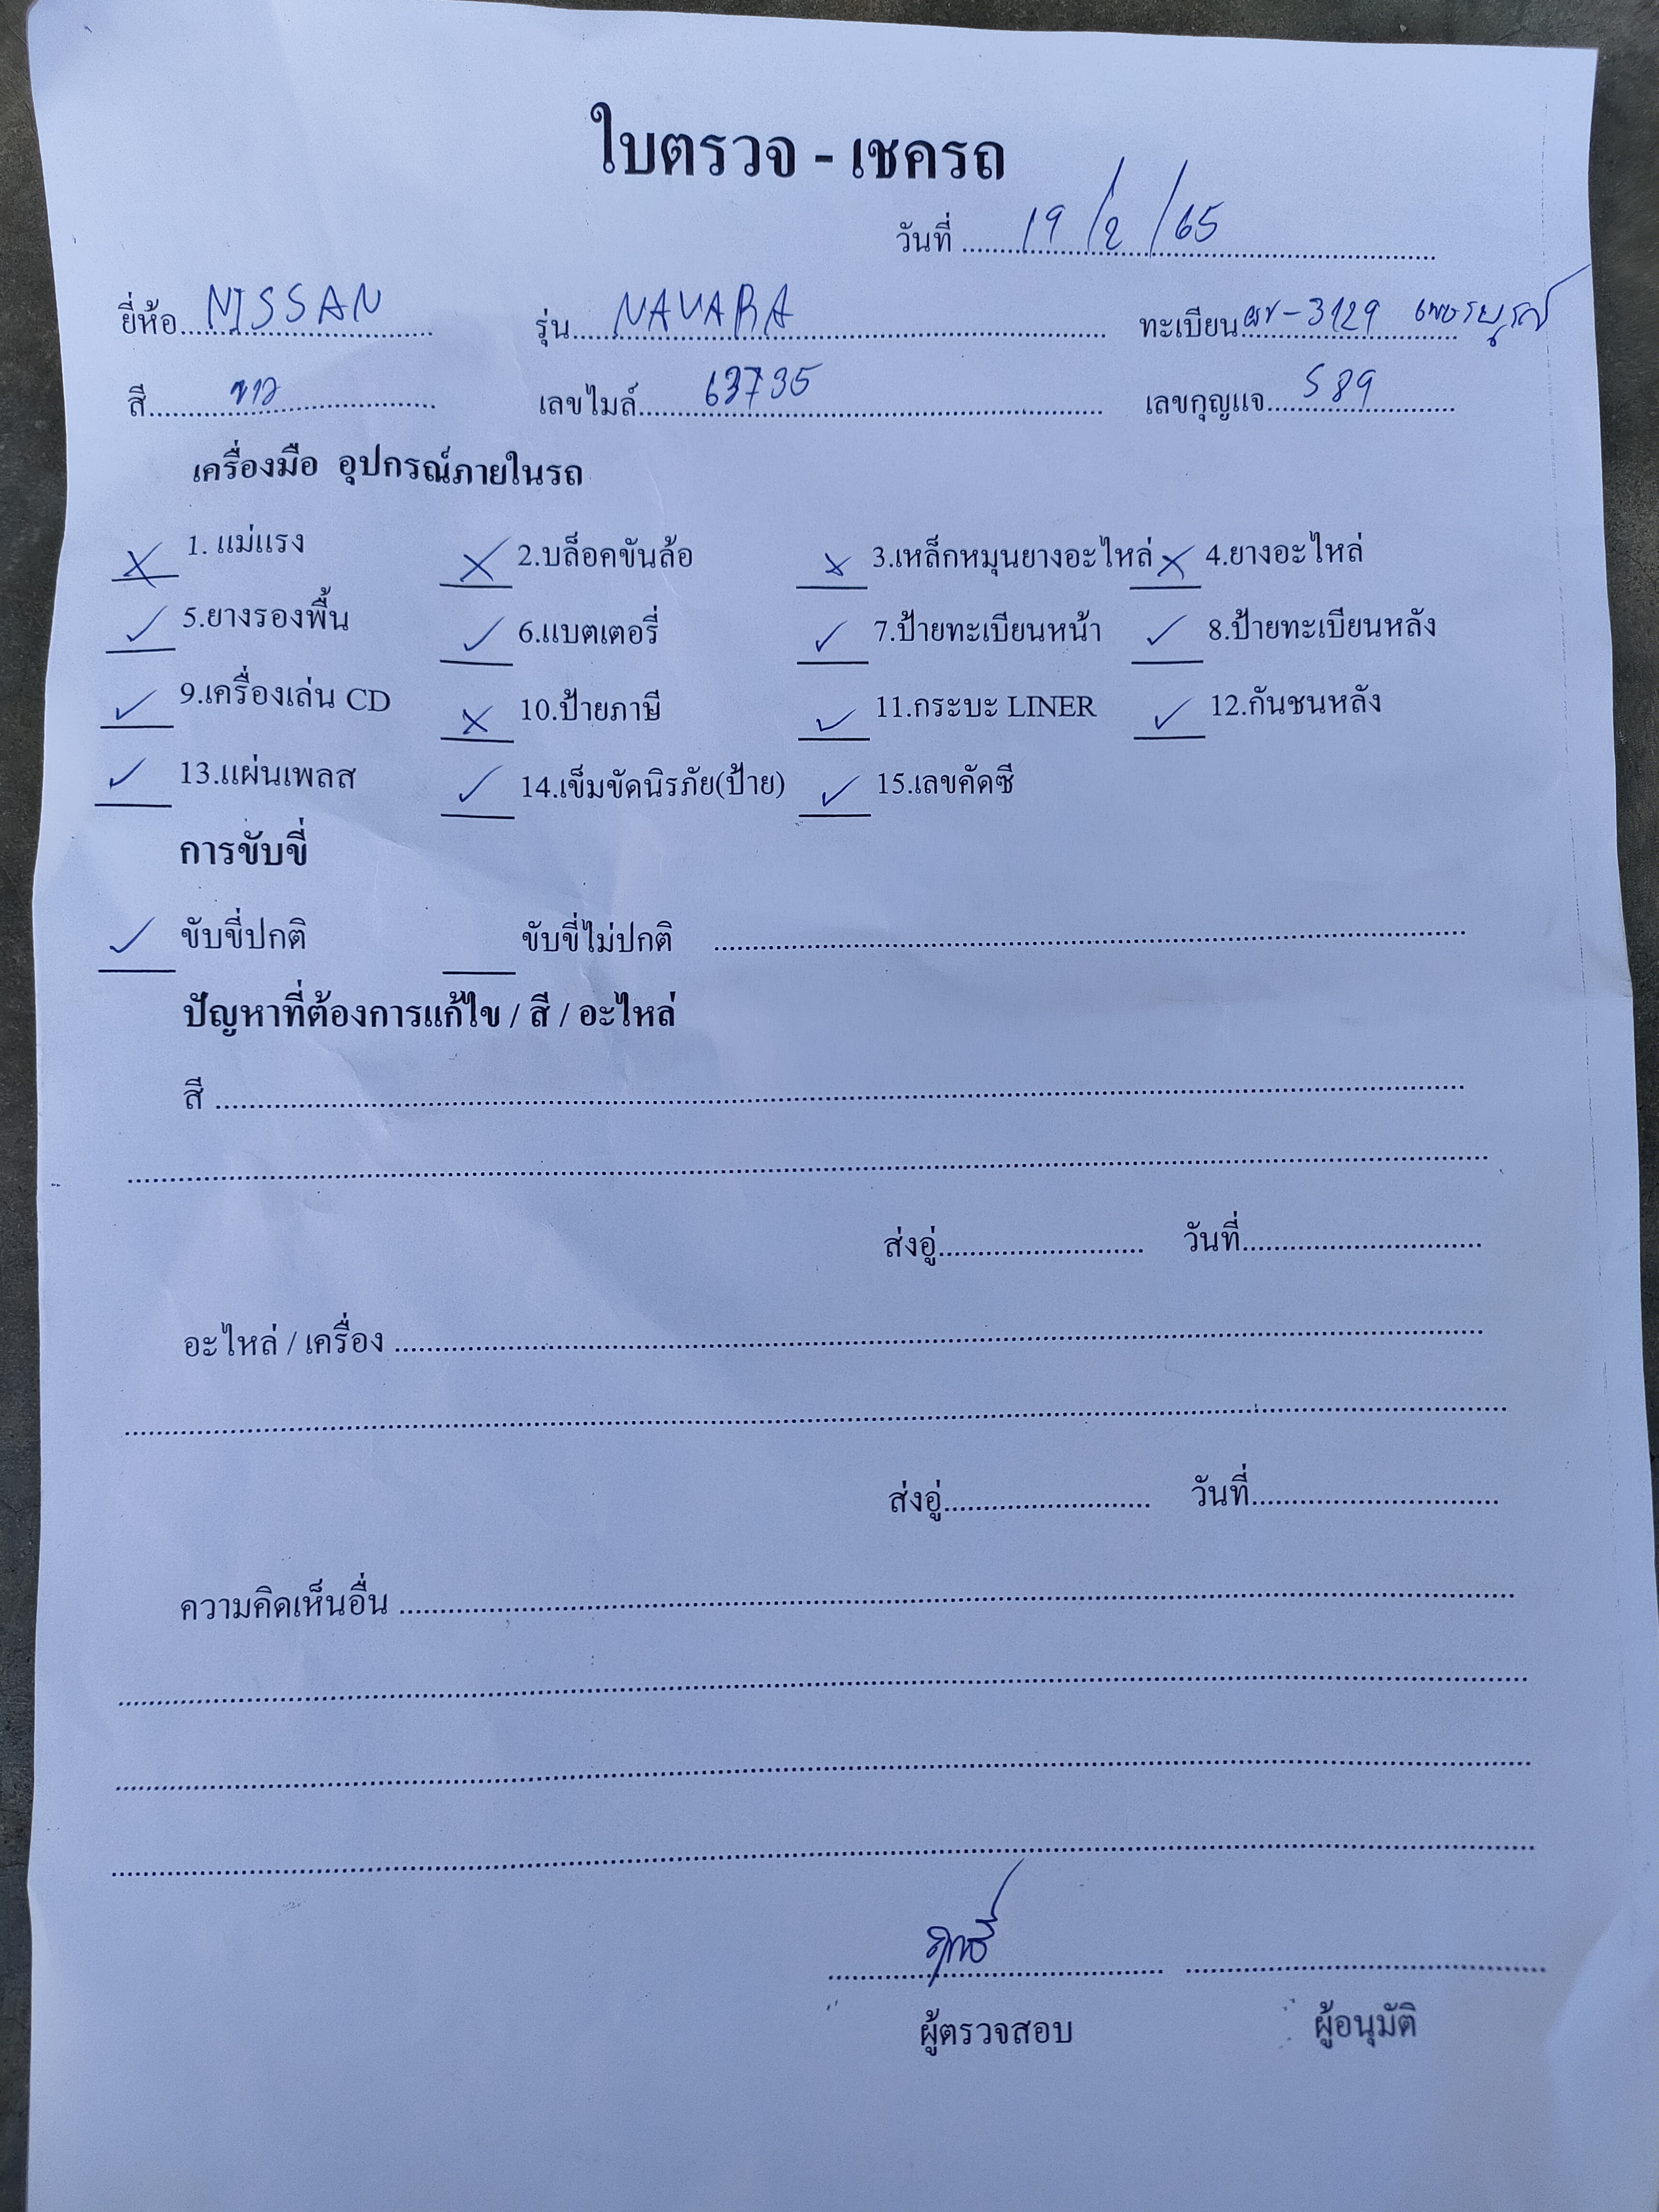 ใบตรวจ - เชครถ
วันที่ 19/2/65
ยี่ห้อ NISSAN รุ่น NAVARA ทะเบียน -3129 เพชรบูรณ์
สี ขาว เลขไมล์ 63735 เลขกุญแจ 589
เครื่องมือ อุปกรณ์ภายในรถ
1. แม่แรง 2.บล็อคขันล้อ 3.เหล็กหมุนยางอะไหล่ 4.ยางอะไหล่
5.ยางรองพื้น 6.แบตเตอรี่ 7.ป้ายทะเบียนหน้า 8.ป้ายทะเบียนหลัง
9.เครื่องเล่น CD 10.ป้ายภาษี 11.กระบะ LINER 12.กันชนหลัง
13.แผ่นเพลส 14.เข็มขัดนิรภัย(ป้าย) 15.เลขคัดซี
การขับขี่
ขับขี่ปกติ ขับขี่ไม่ปกติ
ปัญหาที่ต้องการแก้ไข / สี / อะไหล่
สี
ส่งอู่ วันที่
อะไหล่ / เครื่อง
ส่งอู่ วันที่
ความคิดเห็นอื่น
ผู้ตรวจสอบ ผู้อนุมัติ